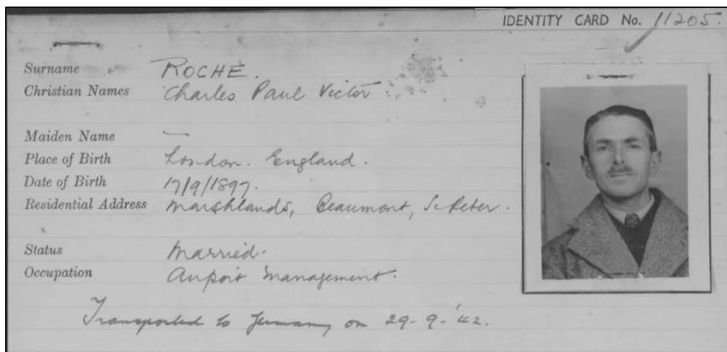 IDENTITY CARD No. 11205.
Surname ROCHÉ.
Christian Names Charles Paul Victor
Maiden Name —
Place of Birth London. England.
Date of Birth 17/9/1897.
Residential Address Marshlands, Beaumont, St. Peter.
Status Married.
Occupation Airport Management.
Transported to Germany on 29-9-'42.